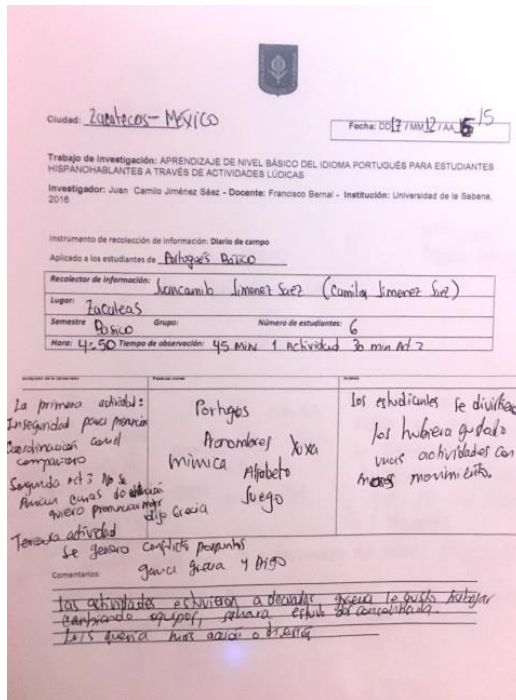 Ciudad: Zacatecas - México
Fecha: DD 17 / MM 12 / AA 15
Trabajo de Investigación: APRENDIZAJE DE NIVEL BÁSICO DEL IDIOMA PORTUGUÉS PARA ESTUDIANTES
HISPANOHABLANTES A TRAVÉS DE ACTIVIDADES LÚDICAS
Investigador: Juan Camilo Jiménez Sáez - Docente: Francisco Bernal - Institución: Universidad de la Sabana,
2016.
Instrumento de recolección de información: Diario de campo
Aplicado a los estudiantes de Portugués Básico
Recolector de información: Juancamilo Jimenez Saez (Camilo Jimenez Saez)
Lugar: Zacatecas
Semestre Basico Grupo: Número de estudiantes: 6
Hora: 4:50 Tiempo de observación: 45 MIN 1 Actividad 30 min Act 2
La primera actividad:
Inseguridad para
Coordinación con el
compañero
Segunda Act 3 No se
quiero pronunciar mejor
dijo Grecia
Tercera actividad
Se genero conflicto
gana Grecia y Digo
Portugés
Pronombres Xuxa
mimica Alfabeto
Juego
los estudiantes se
les hubiera gustado
unas actividades con
menos movimiento.
Comentarios:
las actividades estuvieron adecuadas grecia le gusto trabajar
cambiando equipos, estuvo
Luis queria mas